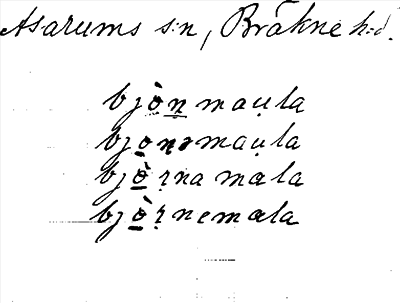 Asarums s:n, Bräkne h:d.
bjò̲n̲maṷla
bjo̲nəmaṷla
bjò̲ṛnamala
bjò̲ṛnemala